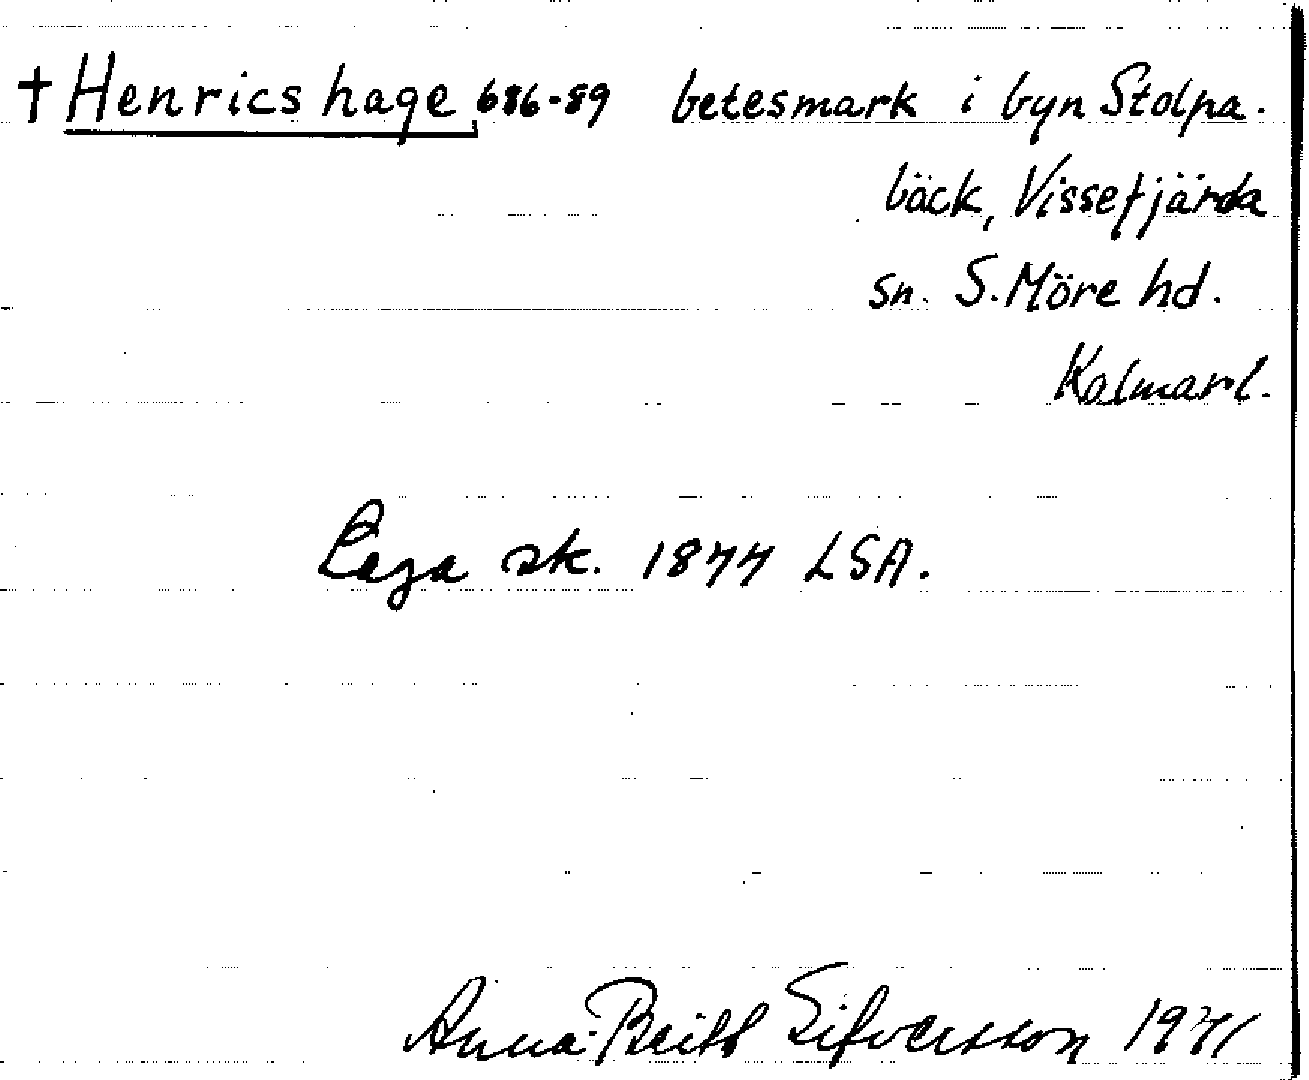 † Henrics hage, 686-89 betesmark i byn Stolpa-
bäck, Vissefjärda
sn. S. Möre hd.
Kalmar l.
Laga sk. 1877 LSA.
Anna-Britt Silversson 1971